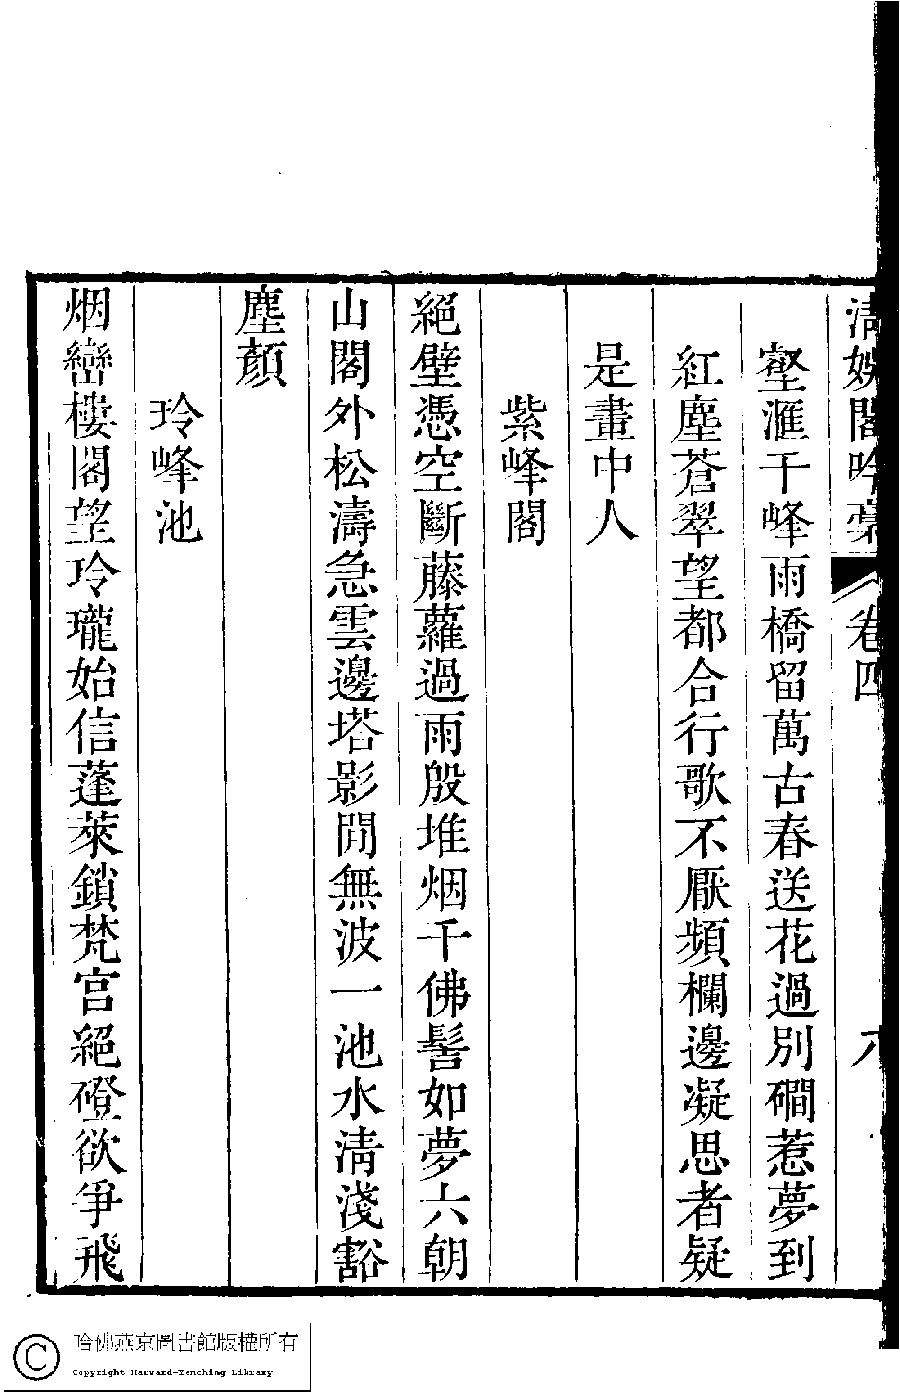 清娛閣吟稾 卷四 八
壑滙千峰雨橋留萬古春送花過別磵惹夢到
紅塵蒼翠望都合行歌不厭頻欄邊凝思者疑
是畫中人
紫峰閣
絕壁憑空斷藤蘿過雨殷堆烟千佛髻如夢六朝
山閣外松濤急雲邊塔影閒無波一池水清淺豁
塵顏
玲峰池
烟巒樓閣望玲瓏始信蓬萊鎖梵宮絕磴欲爭飛
哈佛燕京圖書館版權所有
Copyright Harvard-Yenching Library